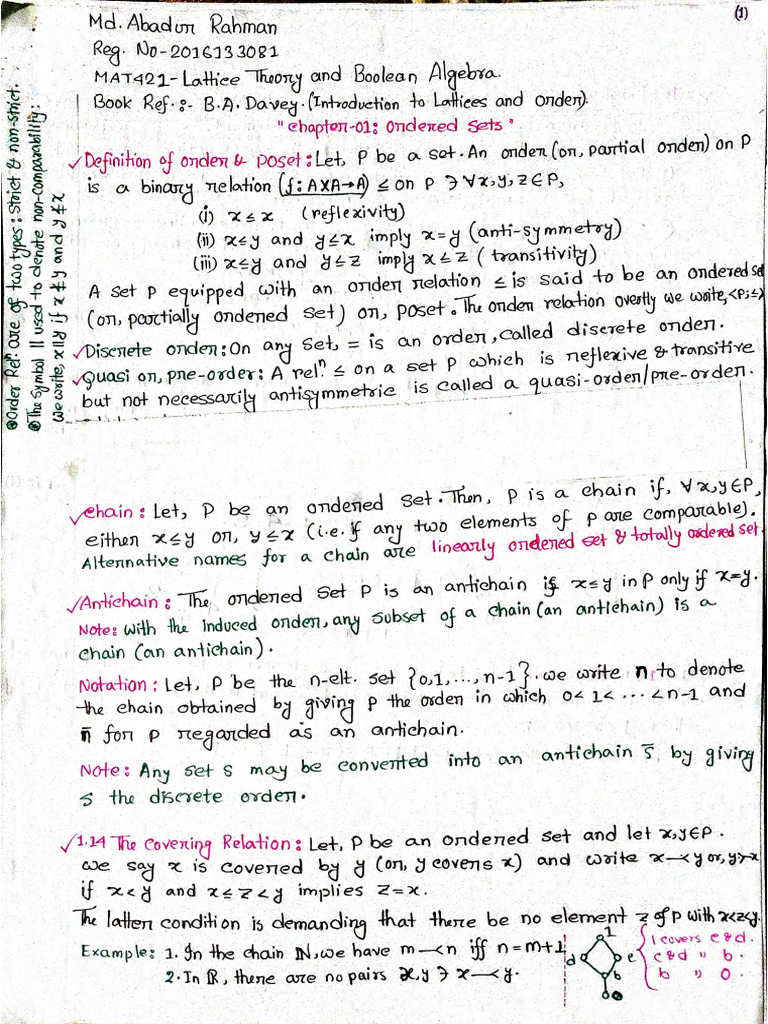 (1)
Md. Abadur Rahman
Reg. No-2016133081
MAT421-Lattice Theory and Boolean Algebra.
Book Ref.:- B.A. Davey.(Introduction to Lattices and Order).
"Chapter-01: Ordered Sets"
✓Definition of order & poset: Let, P be a set. An order (or, partial order) on P
is a binary relation (f: A×A→A) ≤ on P ∋ ∀x,y,z∈P,
(i) x≤x (reflexivity)
(ii) x≤y and y≤x imply x=y (anti-symmetry)
(iii) x≤y and y≤z imply x≤z (transitivity)
A set P equipped with an order relation ≤ is said to be an ordered set
(or, partially ordered set) or, poset. The order relation overtly we write, <P;≤>
✓Discrete order: On any set, = is an order, called discrete order.
✓Quasi or, pre-order: A relⁿ ≤ on a set P which is reflexive & transitive
but not necessarily antisymmetric is called a quasi-order/pre-order.
⊛Order Relⁿ are of two types: strict & non-strict.
⊛The symbol || used to denote non-comparability:
we write, x||y if x≰y and y≰x
✓Chain: Let, P be an ordered set. Then, P is a chain if, ∀x,y∈P,
either x≤y or, y≤x (i.e. If any two elements of P are comparable).
Alternative names for a chain are linearly ordered set & totally ordered set.
✓Antichain: The ordered Set P is an antichain if x≤y in P only if x=y.
Note: with the induced order, any subset of a chain (an antichain) is a
chain (an antichain).
Notation: Let, P be the n-elt. set {0,1,...,n-1}. we write n to denote
the chain obtained by giving P the order in which 0<1<...<n-1 and
n̄ for P regarded as an antichain.
Note: Any set S may be converted into an antichain S̄ by giving
S the discrete order.
✓1.14 The Covering Relation: Let, P be an ordered set and let x,y∈P.
we say x is covered by y (or, y covers x) and write x⤙y or, y⤚x
if x<y and x≤z<y implies z=x.
The latter condition is demanding that there be no element z of P with x<z<y.
Example: 1. In the chain ℕ, we have m⤙n iff n=m+1
2. In ℝ, there are no pairs x,y ∋ x⤙y.
1
d
c
b
0
1 covers c & d.
c & d " b.
b " 0.